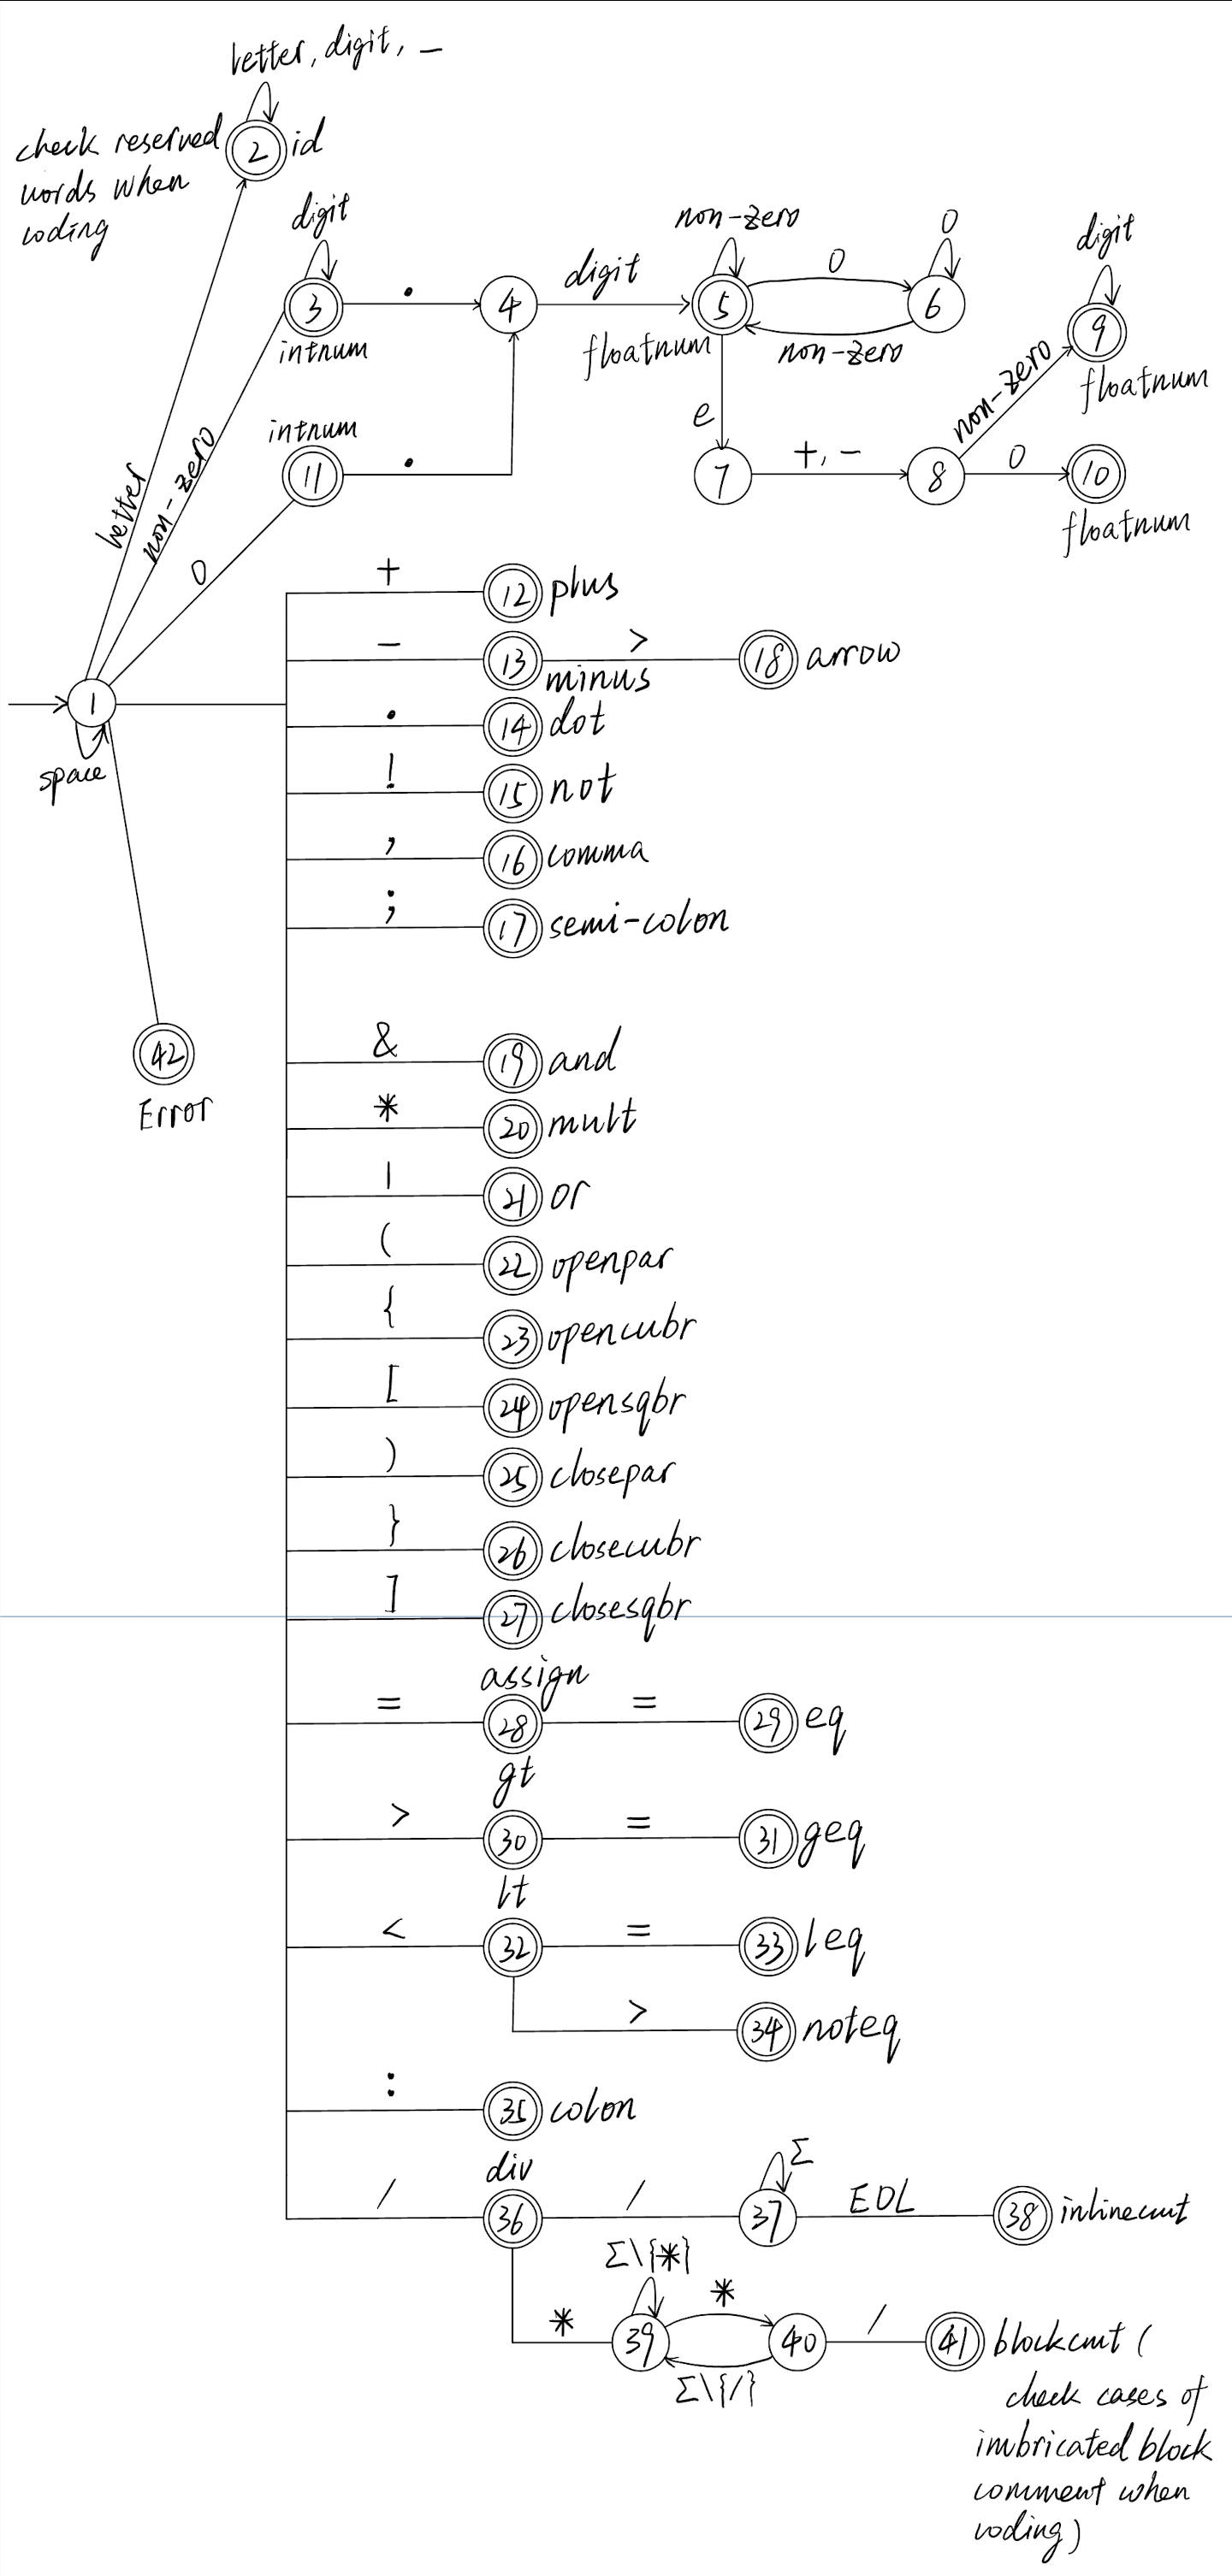 letter, digit, _
check reserved
words when
coding
2 id
digit
3
intnum
.
4
digit
non-zero
5
floatnum
0
0
6
non-zero
digit
9
floatnum
non-zero
e
7
+, -
8
0
10
floatnum
intnum
11
.
letter
non-zero
0
1
space
42
Error
+ 12 plus
- 13 minus > 18 arrow
. 14 dot
! 15 not
, 16 comma
; 17 semi-colon
& 19 and
* 20 mult
| 21 or
( 22 openpar
{ 23 opencubr
[ 24 opensqbr
) 25 closepar
} 26 closecubr
] 27 closesqbr
assign
= 28 = 29 eq
gt
> 30 = 31 geq
lt
< 32 = 33 leq
> 34 noteq
: 35 colon
div
/ 36 / 37 Σ EOL 38 inlinecmt
Σ\{*}
* 39 * 40 / 41 blockcmt (
Σ\{/}
check cases of
imbricated block
comment when
coding)